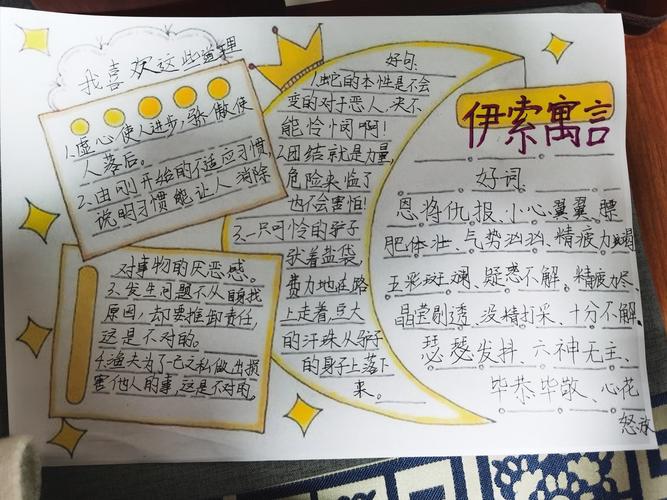 我喜欢这些道理
1.虚心使人进步,骄傲使
人落后。
2.由刚开始的不适应习惯,
说明习惯能让人消除
对事物的厌恶感。
3.发生问题不从自身找
原因,却要推卸责任,
这是不对的。
4.渔夫为了己之私做出损
害他人的事,这是不对的。
好句
1.蛇的本性是不会
变的对于恶人,决不
能怜悯啊!
2.团结就是力量,
危险来临了
也不会害怕!
3.一只可怜的驴子
驮着盐袋,
费力地在路
上走着豆大
的汗珠从驴子
的身子上落下
来。
伊索寓言
好词
恩将仇报、小心翼翼、腰
肥体壮、气势汹汹、精疲力竭
五彩斑斓、疑惑不解、精疲力尽、
晶莹剔透、没精打采、十分不解、
瑟瑟发抖、六神无主、
毕恭毕敬、心花
怒放